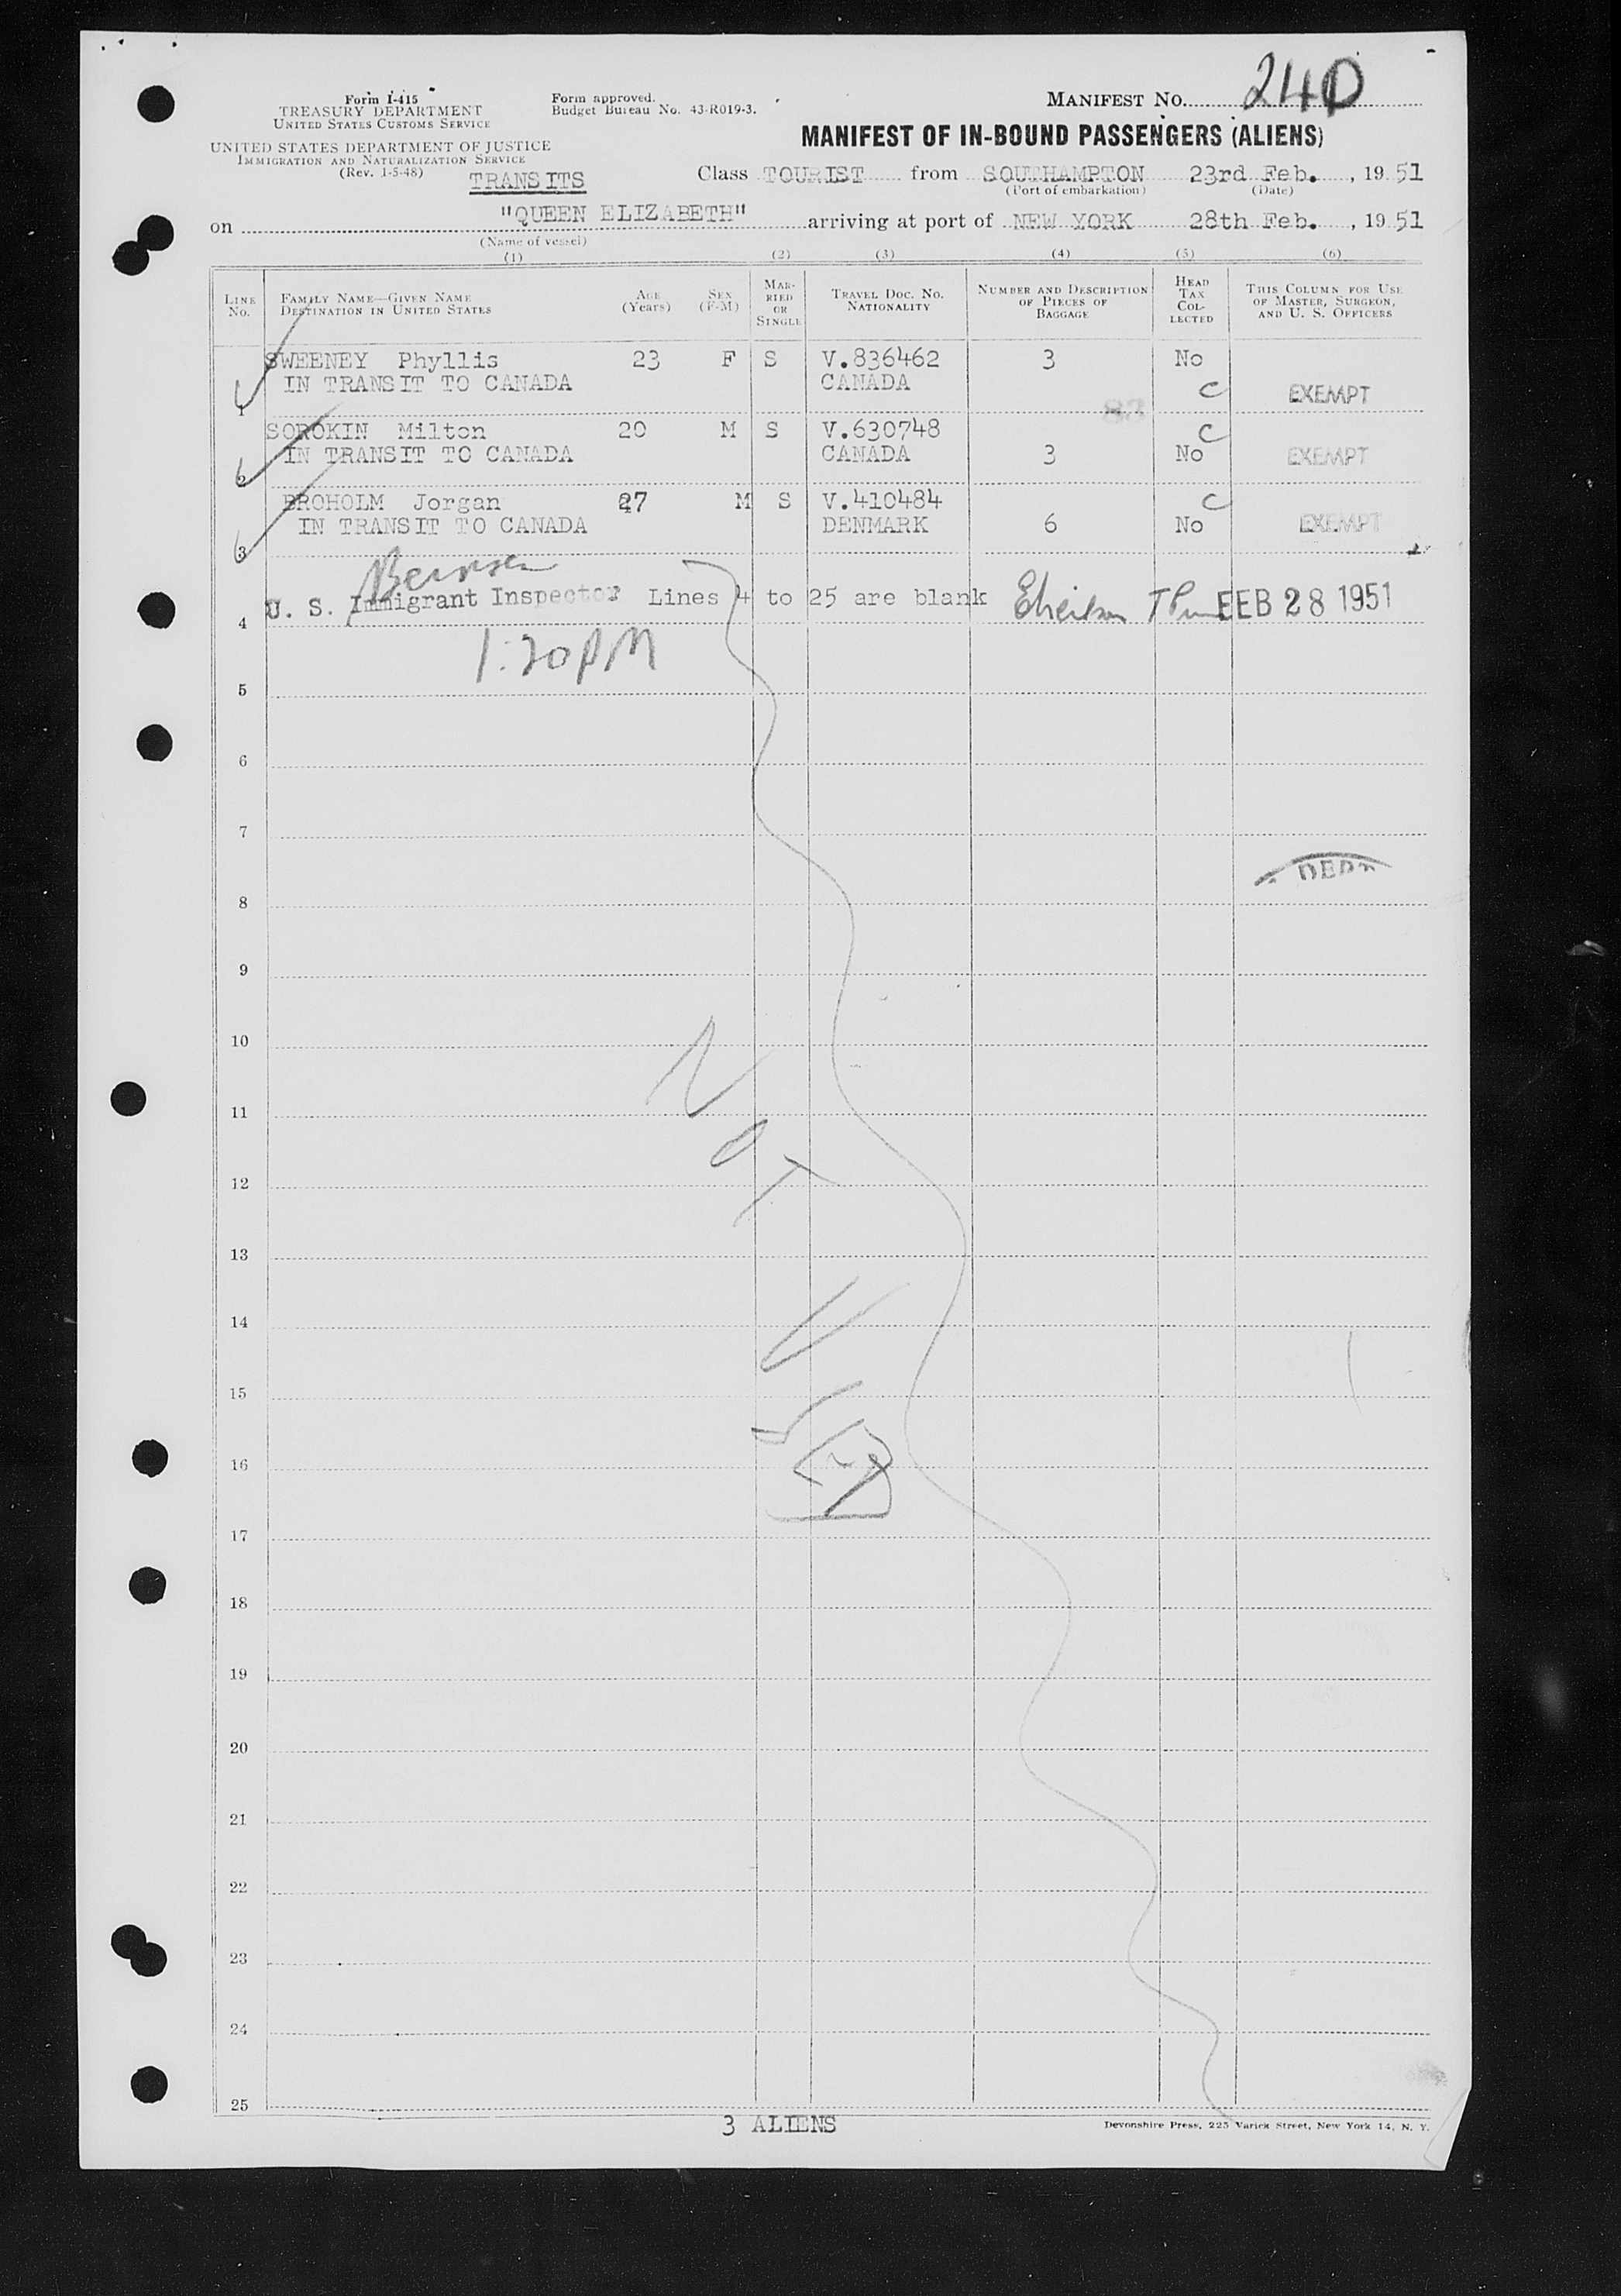 Form I-415
TREASURY DEPARTMENT
UNITED STATES CUSTOMS SERVICE
UNITED STATES DEPARTMENT OF JUSTICE
IMMIGRATION AND NATURALIZATION SERVICE
(Rev. 1-5-48)
TRANSITS
Form approved.
Budget Bureau No. 43-R019-3.
MANIFEST No. 240
MANIFEST OF IN-BOUND PASSENGERS (ALIENS)
Class TOURIST from SOUTHAMPTON 23rd Feb., 1951
(Port of embarkation) (Date)
on "QUEEN ELIZABETH" arriving at port of NEW YORK 28th Feb., 1951
(Name of vessel)
(1) (2) (3) (4) (5) (6)
LINE No.
FAMILY NAME—GIVEN NAME
DESTINATION IN UNITED STATES
AGE (Years)
SEX (F-M)
MARRIED OR SINGLE
TRAVEL DOC. NO.
NATIONALITY
NUMBER AND DESCRIPTION OF PIECES OF BAGGAGE
HEAD TAX COLLECTED
THIS COLUMN FOR USE OF MASTER, SURGEON, AND U. S. OFFICERS
SWEENEY Phyllis 23 F S V.836462 3 No
1 IN TRANSIT TO CANADA CANADA C EXEMPT
SOROKIN Milton 20 M S V.630748 C
2 IN TRANSIT TO CANADA CANADA 3 No EXEMPT
BROHOLM Jorgan 27 M S V.410484 C
3 IN TRANSIT TO CANADA DENMARK 6 No EXEMPT
U. S. Immigrant Inspector Lines 4 to 25 are blank FEB 28 1951
4
1:20PM
5
6
7
DEPT
8
9
10
11
NOT
12
13
14
15
16
17
18
19
20
21
22
23
24
25
3 ALIENS
Devonshire Press, 225 Varick Street, New York 14, N. Y.